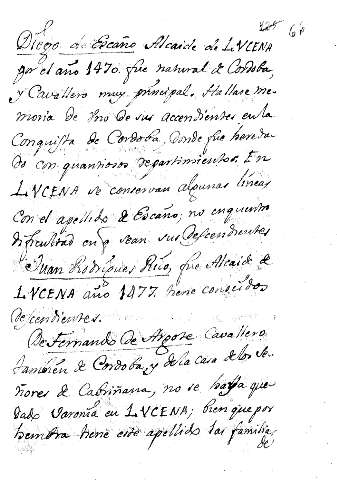 Diego de Escaño Alcaide de LVCENA
por el año 1470. fue natural de Cordoba,
y Cavallero muy principal. Hallase me-
moria de Vno de sus accendientes en la
Conquista de Cordoba, donde fue hereda-
do con quantiosos repartimientos. En
LVCENA se conservan algunas lineas
con el apellido de Escaño; no enquentro
dificultad en q sean sus Descendientes
Juan Rodriguez Rico, fue Alcaide de
LVCENA año 1477. tiene conocidos
Descendientes.
De Fernando de Argote Cavallero
tambien de Cordoba, y de la casa de los Se-
ñores de Cabriñana, no se haya que-
dado Varonia en LVCENA; bien que por
hembra tiene este apellido las familia
de